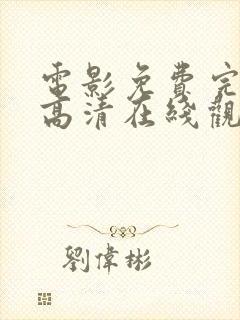 電影免費完
高清在綫觀
劉偉彬